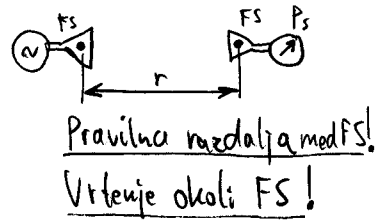 FS FS Ps
r
Pravilna razdalja med FS!
Vrtenje okoli FS!